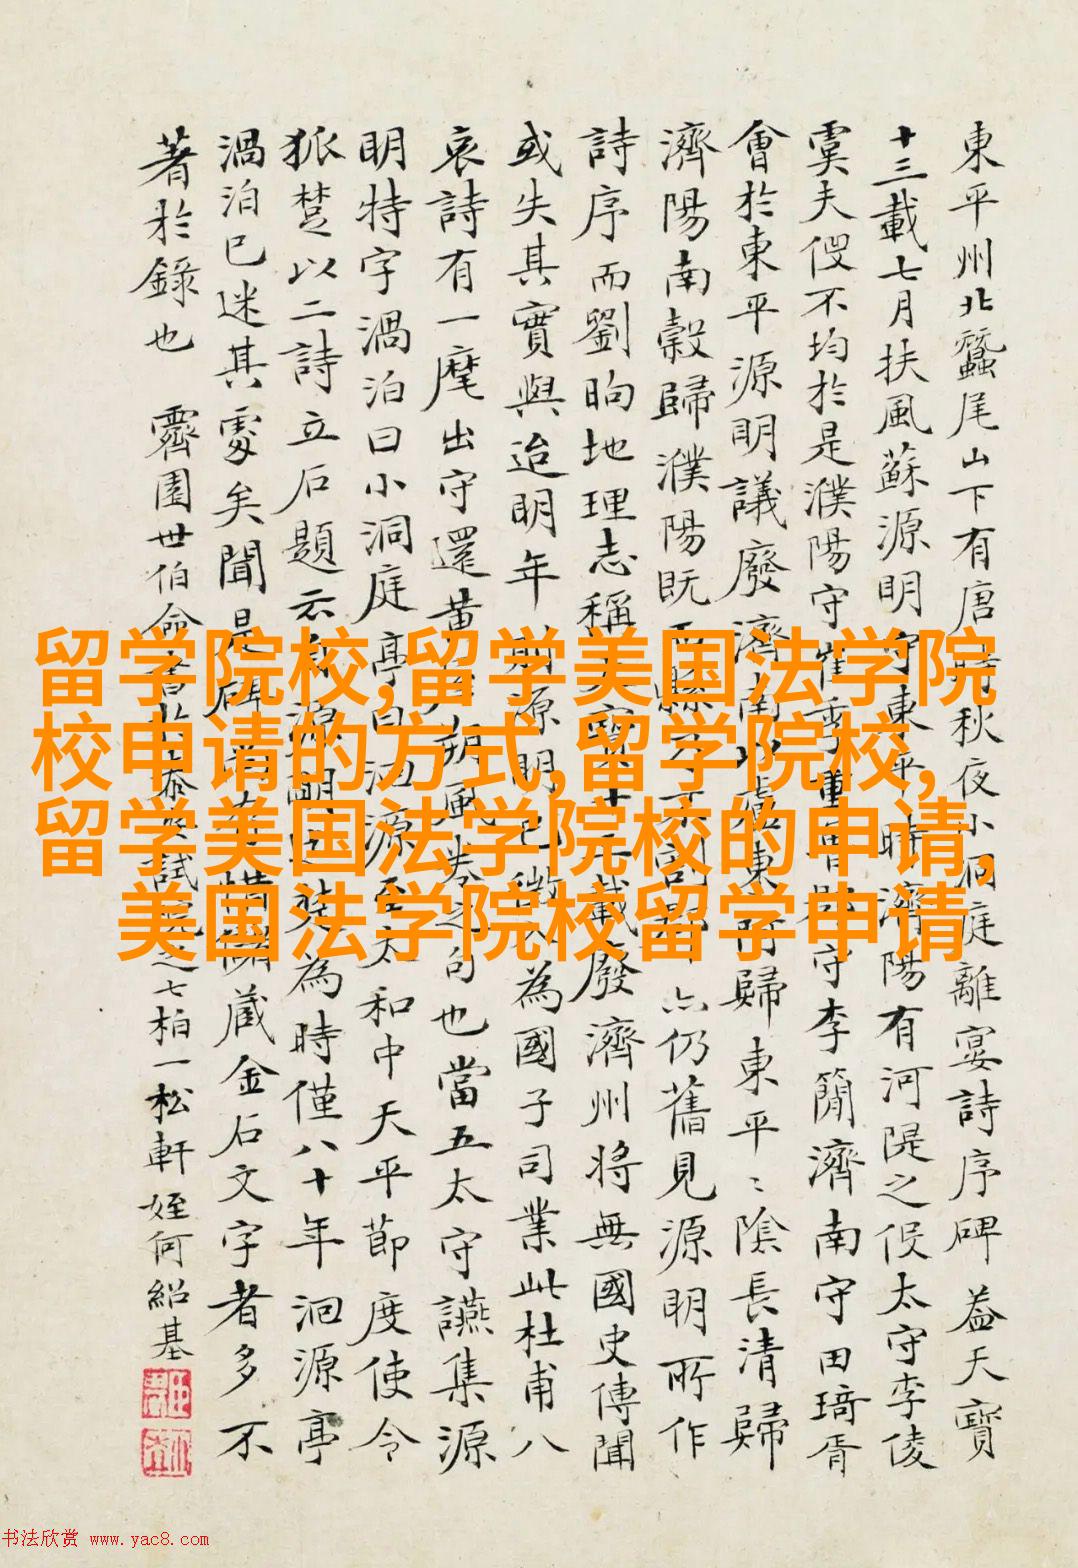 東平州北蠶尾山下有唐時秋夜小洞庭離宴詩序碑 蓋天寶
十三載七月扶風蘇源明守東平時濟陽有河隄之役太守李倰
虞夫役不均於是濮陽守崔季重魯郡守李簡濟南守田琦胥
會於東平源明議廢濟南以東阿歸東平〻陰長清歸
濟陽南穀歸濮陽既而縣六仍舊見源明所作
詩序而劉昫地理志稱天寶十三載廢濟州將無國史傳聞
或失其實與迨明年則源明已徵為國子司業此杜甫八
哀詩有一麾出守還黃朔風卷句也當五太守讌集源
明特字渦泊曰小洞庭亭曰洄源至太和中天平節度使令
狐楚以二詩立石題云源明為時僅八十年洄源亭
渦泊已迷其處矣聞是碑藏金石文字者多不
著於錄也 霽園世伯命書試之七柏一松軒姪何紹基
留学院校,留学美国法学院
校申请的方式,留学院校,
留学美国法学院校的申请,
美国法学院校留学申请
书法欣赏 www.yac8.com